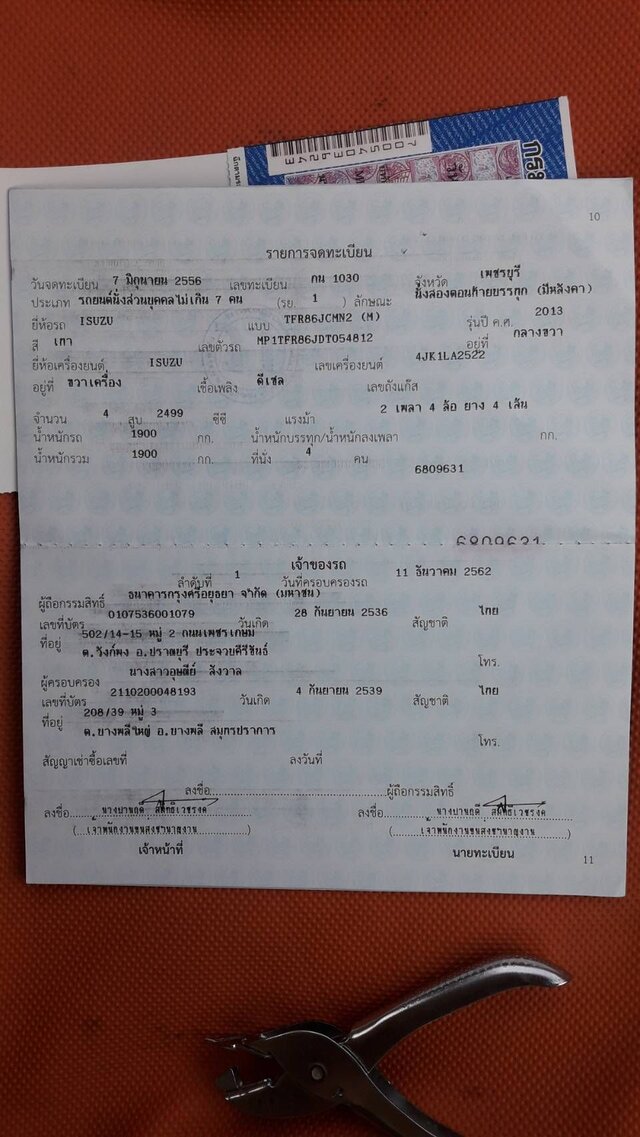 7005403624 3
กรม
10
รายการจดทะเบียน
วันจดทะเบียน 7 มิถุนายน 2556 เลขทะเบียน กน 1030 จังหวัด เพชรบุรี
ประเภท รถยนต์นั่งส่วนบุคคลไม่เกิน 7 คน (รย. 1 ) ลักษณะ นั่งสองตอนท้ายบรรทุก (มีหลังคา)
ยี่ห้อรถ ISUZU แบบ TFR86JCMN2 (M) รุ่นปี ค.ศ. 2013
สี เทา เลขตัวรถ MP1TFR86JDT054812 อยู่ที่ กลางขวา
ยี่ห้อเครื่องยนต์ ISUZU เลขเครื่องยนต์ 4JK1LA2522
อยู่ที่ ขวาเครื่อง เชื้อเพลิง ดีเซล เลขถังแก๊ส
จำนวน 4 สูบ 2499 ซีซี แรงม้า 2 เพลา 4 ล้อ ยาง 4 เส้น
น้ำหนักรถ 1900 กก. น้ำหนักบรรทุก/น้ำหนักลงเพลา กก.
น้ำหนักรวม 1900 กก. ที่นั่ง 4 คน
6809631
6809631
เจ้าของรถ
ลำดับที่ 1 วันที่ครอบครองรถ 11 ธันวาคม 2562
ผู้ถือกรรมสิทธิ์ ธนาคารกรุงศรีอยุธยา จำกัด (มหาชน)
เลขที่บัตร 0107536001079 วันเกิด 28 กันยายน 2536 สัญชาติ ไทย
ที่อยู่ 502/14-15 หมู่ 2 ถนนเพชรเกษม
ต.วังก์พง อ.ปราณบุรี ประจวบคีรีขันธ์ โทร.
ผู้ครอบครอง นางสาวอุษณีย์ สังวาล
เลขที่บัตร 2110200048193 วันเกิด 4 กันยายน 2539 สัญชาติ ไทย
ที่อยู่ 208/39 หมู่ 3
ต.บางพลีใหญ่ อ.บางพลี สมุทรปราการ โทร.
สัญญาเช่าซื้อเลขที่ ลงวันที่
ลงชื่อ ผู้ถือกรรมสิทธิ์
ลงชื่อ ลงชื่อ
(เจ้าพนักงานขนส่งชำนาญงาน) (เจ้าพนักงานขนส่งชำนาญงาน)
เจ้าหน้าที่ นายทะเบียน
11